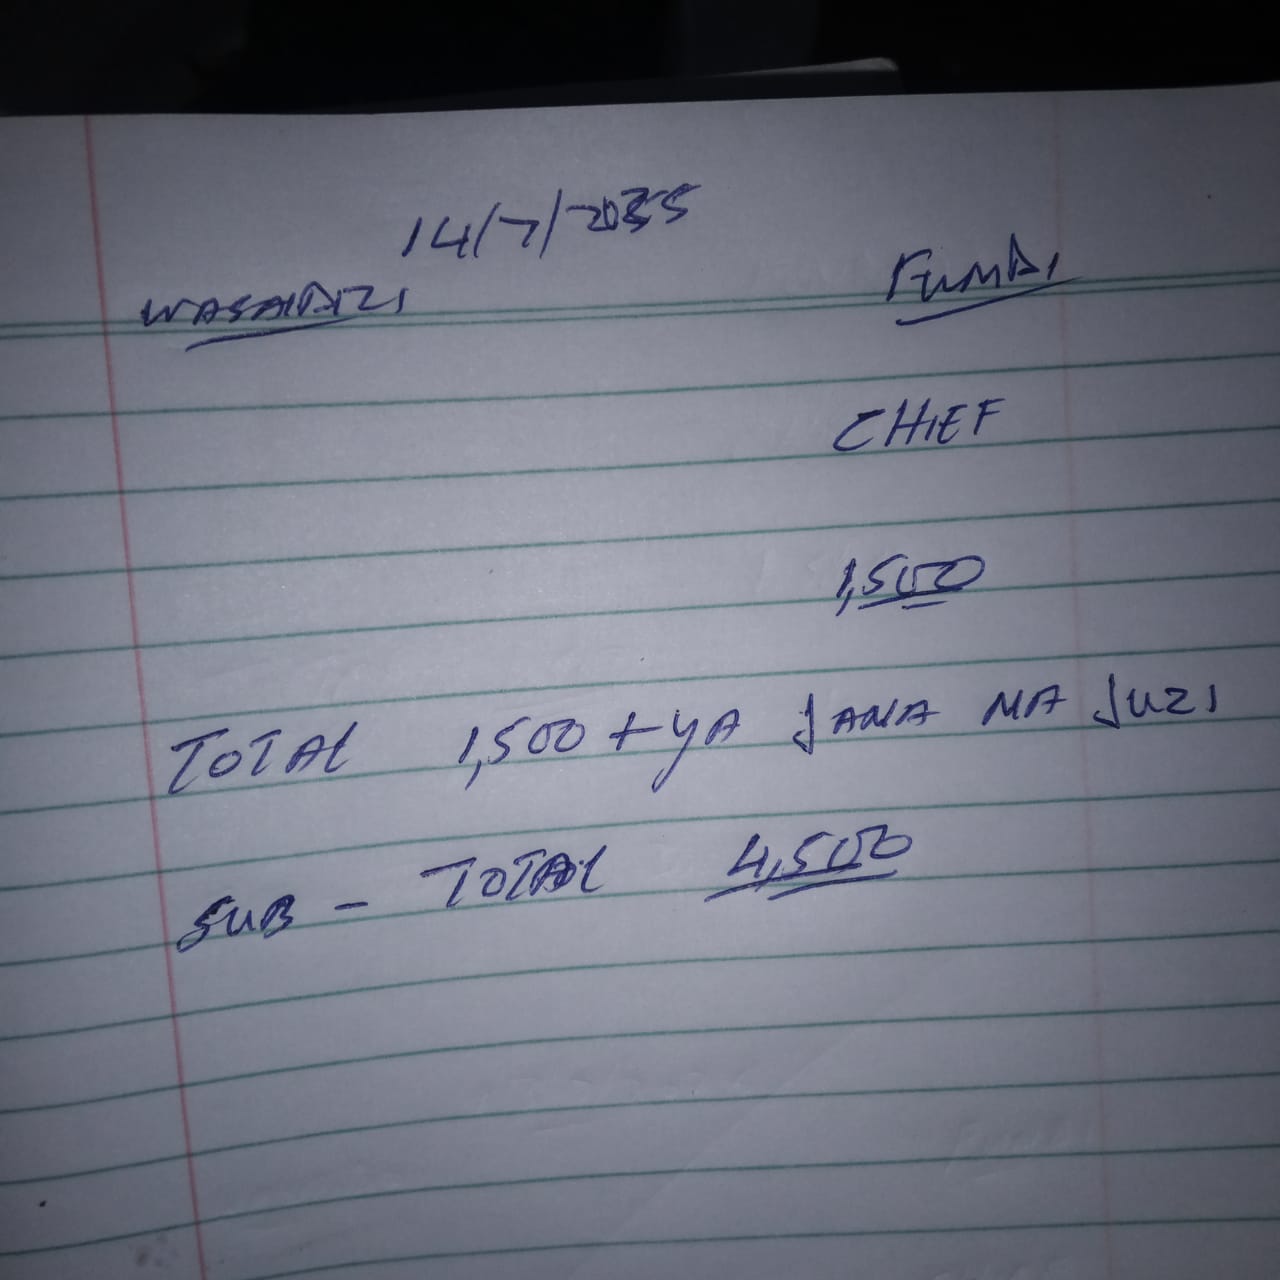 14/7/2025
WASAIDIZI FUNDI
CHIEF
1,500
TOTAL 1,500 + YA JANA NA JUZI
SUB - TOTAL 4,500